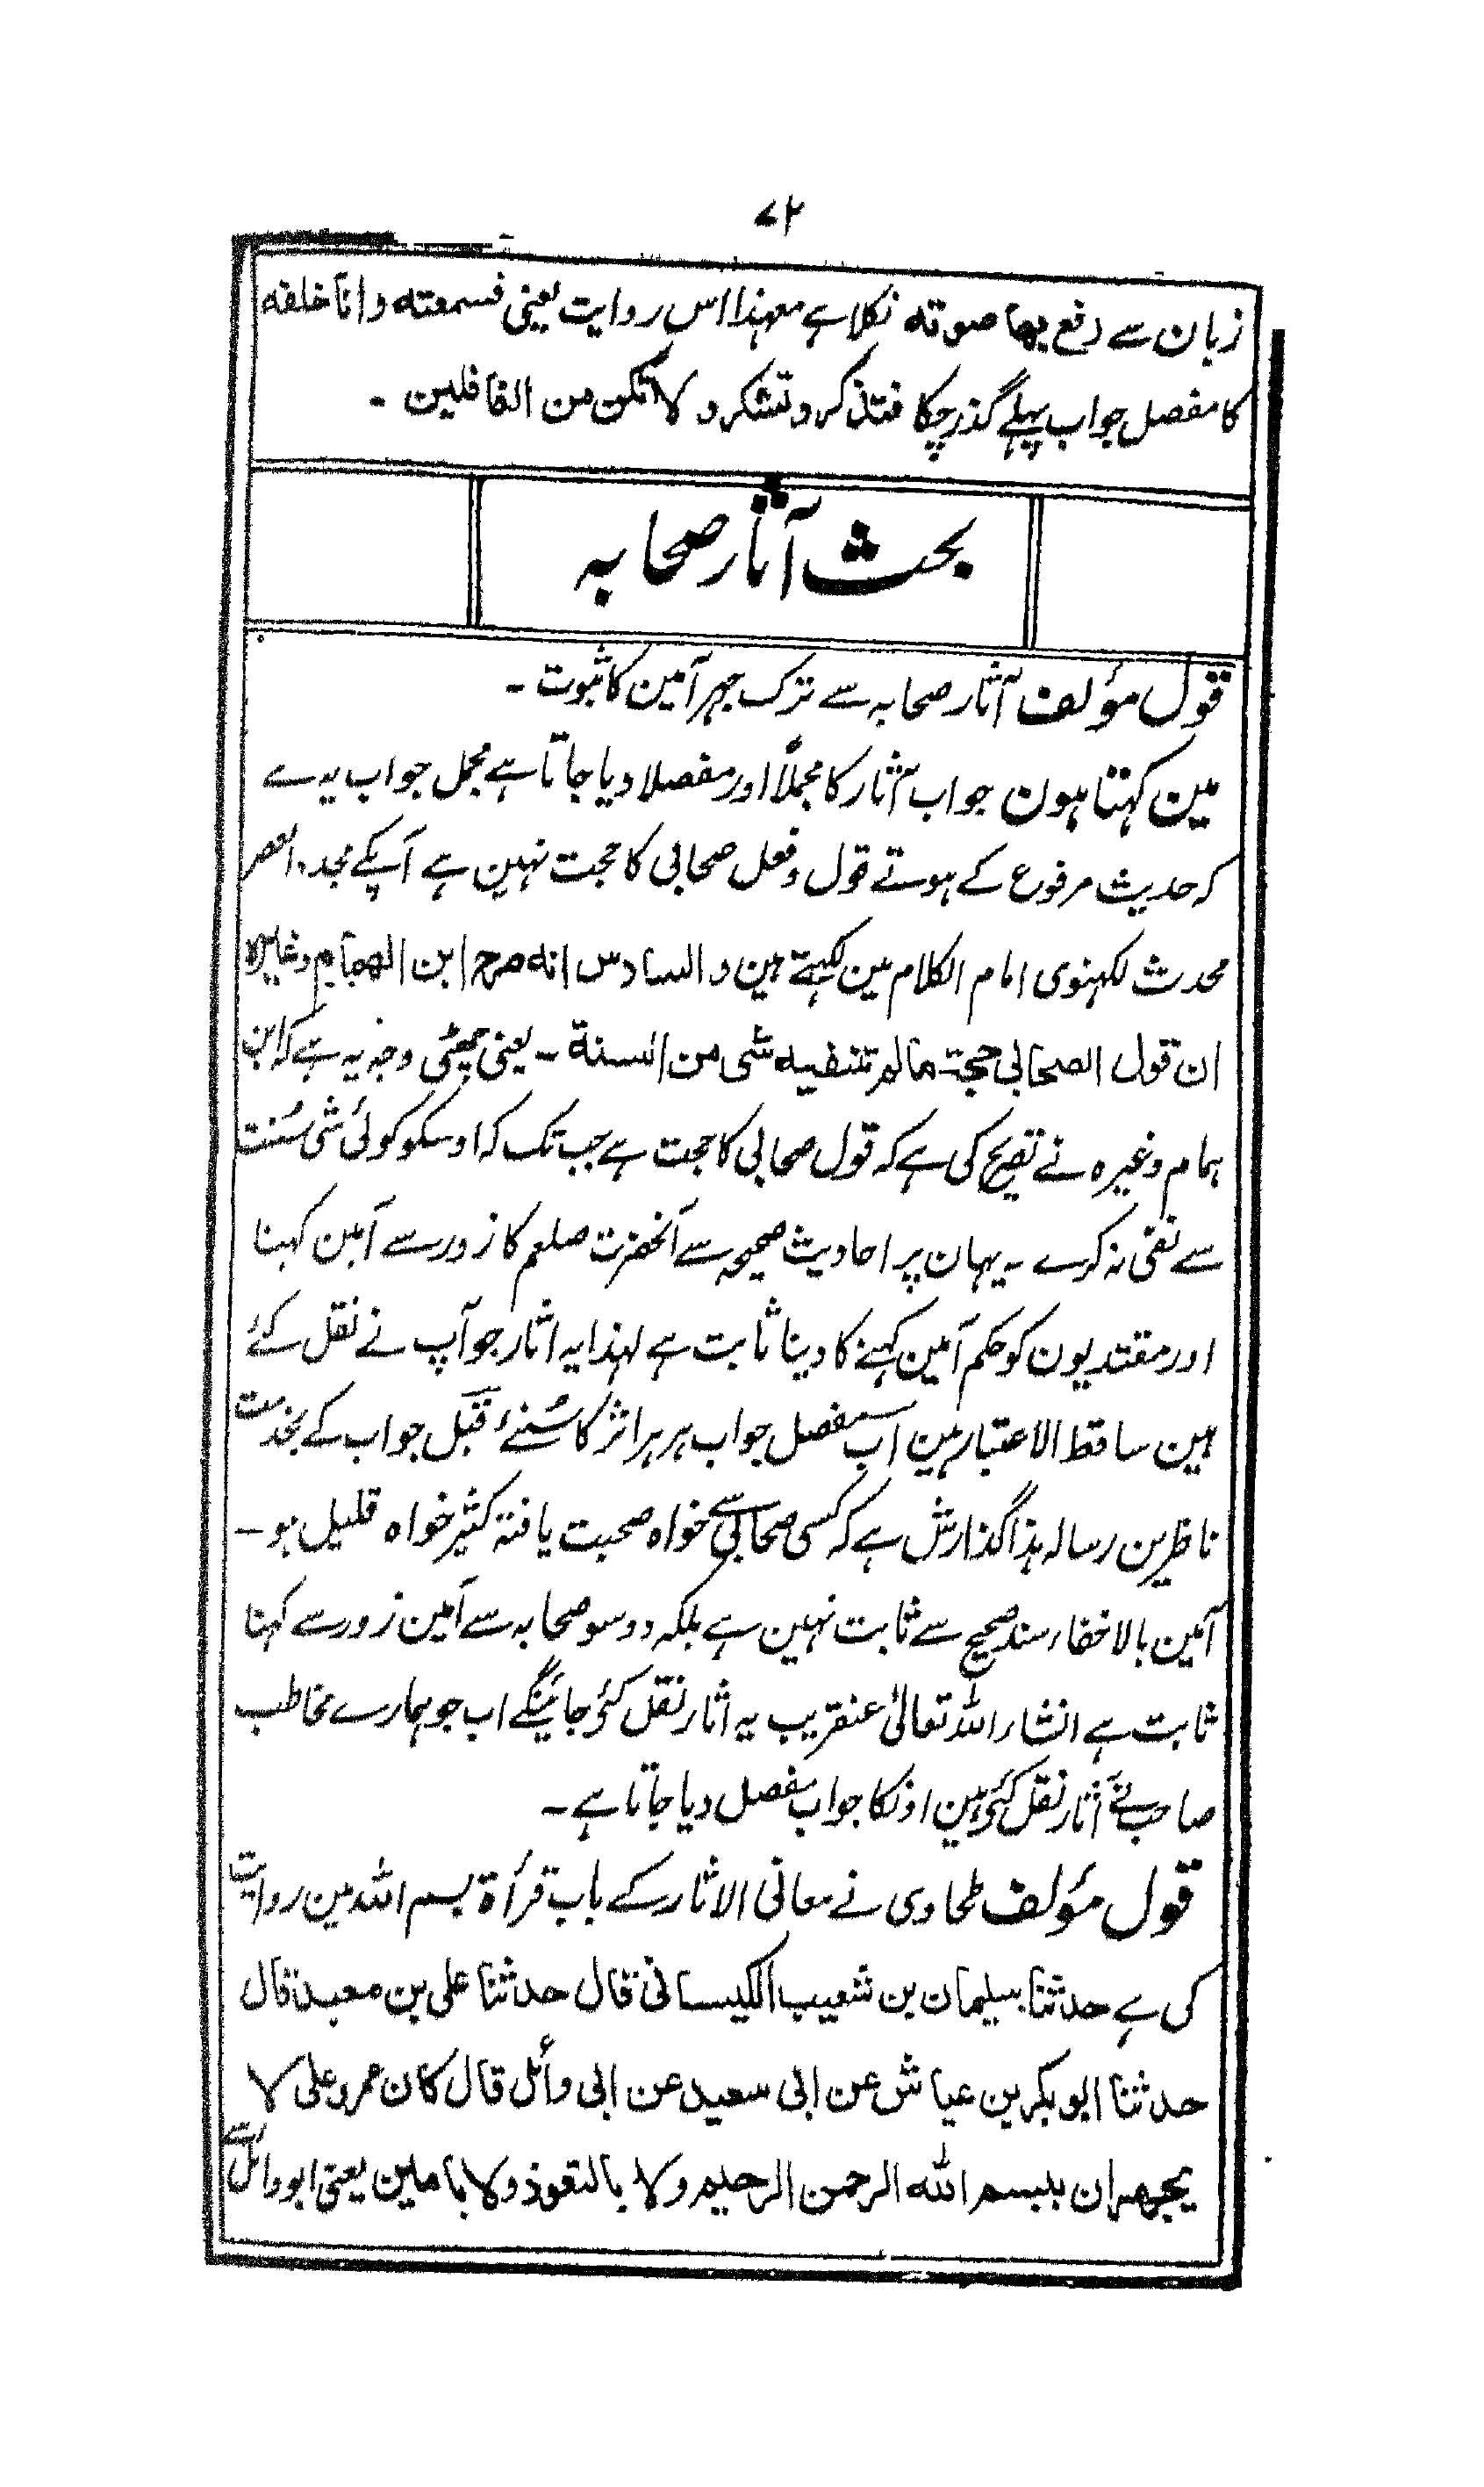 ۷۲
زبان سے رفع بها صوته نکلا ہے معہذا اس روایت یعنی فسمعته وانا خلفه
کا مفصل جواب پہلے گذر چکا فتذکر وتشکر و لا تکن من الغافلین ۔
بحث آثار صحابہ
قول مؤلف آثار صحابہ سے ترک جہر آمین کا ثبوت ۔
مین کہتا ہون جواب آثار کا مجملًا اور مفصلا دیا جاتا ہے مجمل جواب یہ ہے
کہ حدیث مرفوع کے ہوتے قول و فعل صحابی کا حجت نہین ہے آپکے مجدد العصر
محدث لکہنوی امام الکلام مین لکہتے ہین والسادس انه صرح ابن الهمام وغیره
ان قول الصحابی حجة مالم تنفیه شی من السنة ۔ یعنی چھٹی وجہ یہ ہے کہ ابن
ہمام وغیرہ نے تصریح کی ہے کہ قول صحابی کا حجت ہے جب تک کہ اوسکو کوئی شی سُنت
سے نفی نہ کرے ۔ یہان پر احادیث صحیحہ سے آنحضرت صلعم کا زور سے آمین کہنا
اور مقتدیون کو حکم آمین کہنے کا دینا ثابت ہے لہذا یہ اثار جو آپ نے نقل کئے
ہین ساقط الاعتبار ہین اب مفصل جواب ہر ہر اثر کا سُنئے قبل جواب کے بخدمت
ناظرین رسالہ ہذا گذارش ہے کہ کسی صحابی سے خواہ صحبت یافتہ کثیر خواہ قلیل ہو ۔
آمین بالاخفاء سند صحیح سے ثابت نہین ہے بلکہ دو سو صحابہ سے آمین زور سے کہنا
ثابت ہے انشاء اللہ تعالیٰ عنقریب یہ اثار نقل کئی جائینگے اب جو ہمارے مخاطب
صاحب نے آثار نقل کئی ہین اونکا جواب مفصل دیا جاتا ہے ۔
قول مؤلف طحاوی نے معانی الاثار کے باب قرأة بسم اللہ مین روایت
کی ہے حدثنا سلیمان بن شعیب الکیسانی قال حدثنا علی بن معبد قال
حدثنا ابو بکر بن عیاش عن ابی سعید عن ابی وائل قال کان عمر وعلی لا
یجهران ببسم الله الرحمن الرحیم ولا بالتعوذ ولا بامین یعنی ابو وائل سے